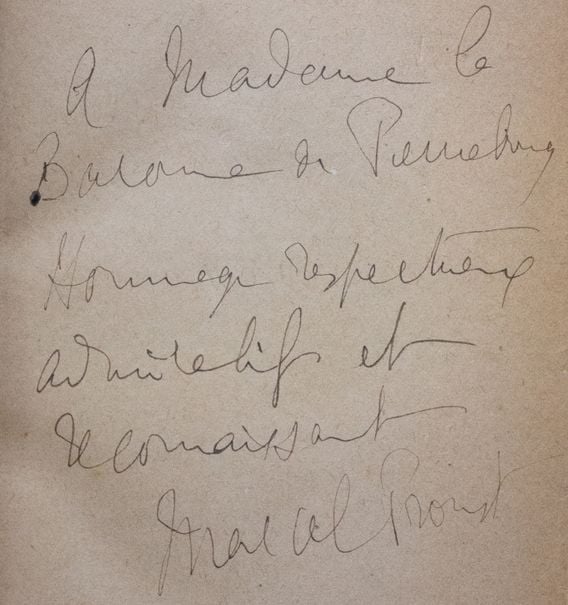 A Madame la
Baronne de Pierrebourg
Hommage respectueux
admiratif et
reconnaissant
Marcel Proust